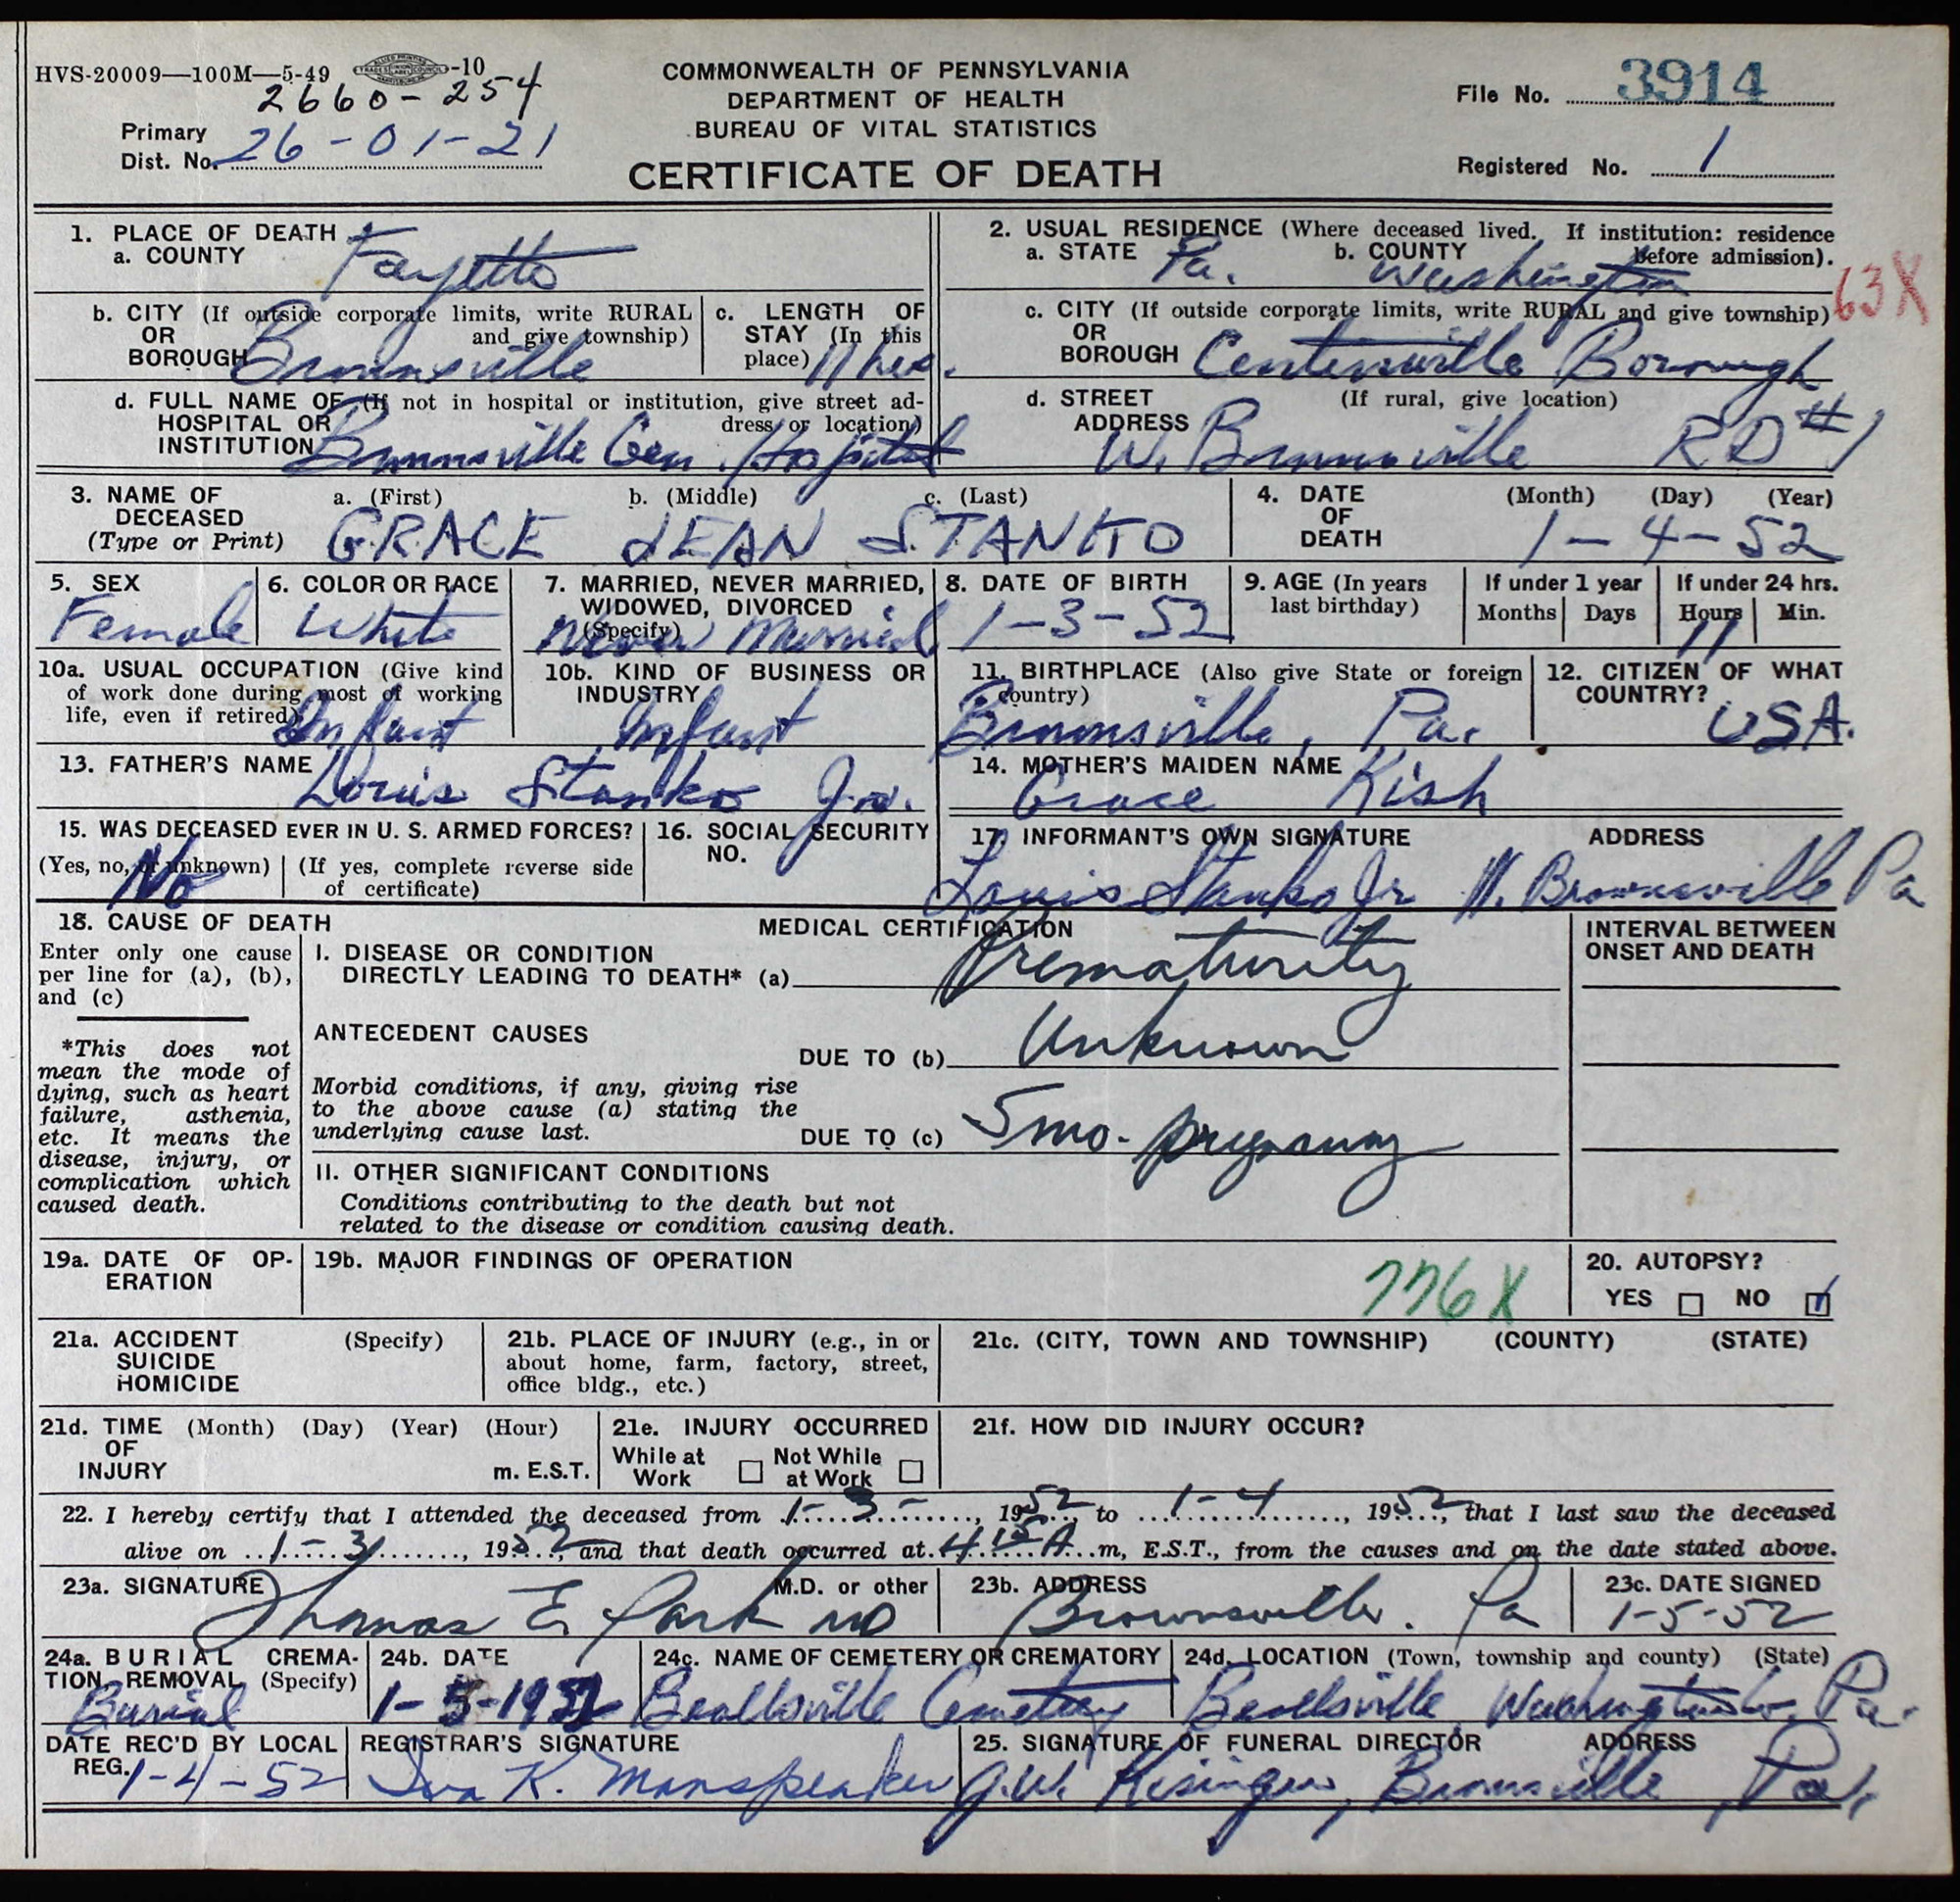 HVS-20009—100M—5-49 -10
2660-254
COMMONWEALTH OF PENNSYLVANIA
DEPARTMENT OF HEALTH
BUREAU OF VITAL STATISTICS
CERTIFICATE OF DEATH
Primary
Dist. No. 26-01-21
File No. 3914
Registered No. 1
1. PLACE OF DEATH
a. COUNTY Fayette
b. CITY (If outside corporate limits, write RURAL
OR and give township)
BOROUGH Brownsville
c. LENGTH OF
STAY (In this
place) 11 hrs.
d. FULL NAME OF (If not in hospital or institution, give street ad-
HOSPITAL OR dress or location)
INSTITUTION Brownsville Gen. Hospital
2. USUAL RESIDENCE (Where deceased lived. If institution: residence
before admission).
a. STATE Pa. b. COUNTY Washington
63X
c. CITY (If outside corporate limits, write RURAL and give township)
OR
BOROUGH Centerville Borough
d. STREET (If rural, give location)
ADDRESS W. Brownsville RD #1
3. NAME OF a. (First) b. (Middle) c. (Last)
DECEASED
(Type or Print) GRACE JEAN STANKO
4. DATE (Month) (Day) (Year)
OF
DEATH 1-4-52
5. SEX
Female
6. COLOR OR RACE
White
7. MARRIED, NEVER MARRIED,
WIDOWED, DIVORCED
(Specify)
Never Married
8. DATE OF BIRTH
1-3-52
9. AGE (In years
last birthday)
If under 1 year
Months Days
If under 24 hrs.
Hours Min.
11
10a. USUAL OCCUPATION (Give kind
of work done during most of working
life, even if retired)
Infant
10b. KIND OF BUSINESS OR
INDUSTRY
Infant
11. BIRTHPLACE (Also give State or foreign
country)
Brownsville, Pa.
12. CITIZEN OF WHAT
COUNTRY?
USA.
13. FATHER'S NAME
Louis Stanko Jr.
14. MOTHER'S MAIDEN NAME
Grace Kish
15. WAS DECEASED EVER IN U. S. ARMED FORCES?
(Yes, no, or unknown) (If yes, complete reverse side
of certificate)
No
16. SOCIAL SECURITY
NO.
17. INFORMANT'S OWN SIGNATURE ADDRESS
Louis Stanko Jr W. Brownsville Pa
18. CAUSE OF DEATH
Enter only one cause
per line for (a), (b),
and (c)
*This does not
mean the mode of
dying, such as heart
failure, asthenia,
etc. It means the
disease, injury, or
complication which
caused death.
MEDICAL CERTIFICATION
I. DISEASE OR CONDITION
DIRECTLY LEADING TO DEATH* (a) Prematurity
ANTECEDENT CAUSES
DUE TO (b) Unknown
Morbid conditions, if any, giving rise
to the above cause (a) stating the
underlying cause last.
DUE TO (c) 5 mo. pregnancy
II. OTHER SIGNIFICANT CONDITIONS
Conditions contributing to the death but not
related to the disease or condition causing death.
INTERVAL BETWEEN
ONSET AND DEATH
19a. DATE OF OP-
ERATION
19b. MAJOR FINDINGS OF OPERATION
776X
20. AUTOPSY?
YES NO
21a. ACCIDENT (Specify)
SUICIDE
HOMICIDE
21b. PLACE OF INJURY (e.g., in or
about home, farm, factory, street,
office bldg., etc.)
21c. (CITY, TOWN AND TOWNSHIP) (COUNTY) (STATE)
21d. TIME (Month) (Day) (Year) (Hour)
OF
INJURY m. E.S.T.
21e. INJURY OCCURRED
While at Not While
Work at Work
21f. HOW DID INJURY OCCUR?
22. I hereby certify that I attended the deceased from 1-3-, 1952 to 1-4, 1952, that I last saw the deceased
alive on 1-3, 1952, and that death occurred at 4 15 A m, E.S.T., from the causes and on the date stated above.
23a. SIGNATURE M.D. or other
Thomas E Park MD
23b. ADDRESS
Brownsville. Pa
23c. DATE SIGNED
1-5-52
24a. BURIAL CREMA-
TION, REMOVAL (Specify)
Burial
24b. DATE
1-5-1952
24c. NAME OF CEMETERY OR CREMATORY
Beallsville Cemetery
24d. LOCATION (Town, township and county) (State)
Beallsville, Washington Co. Pa.
DATE REC'D BY LOCAL
REG. 1-4-52
REGISTRAR'S SIGNATURE
Iva K. Manspeaker
25. SIGNATURE OF FUNERAL DIRECTOR ADDRESS
J.W. Kisinger, Brownsville, Pa.